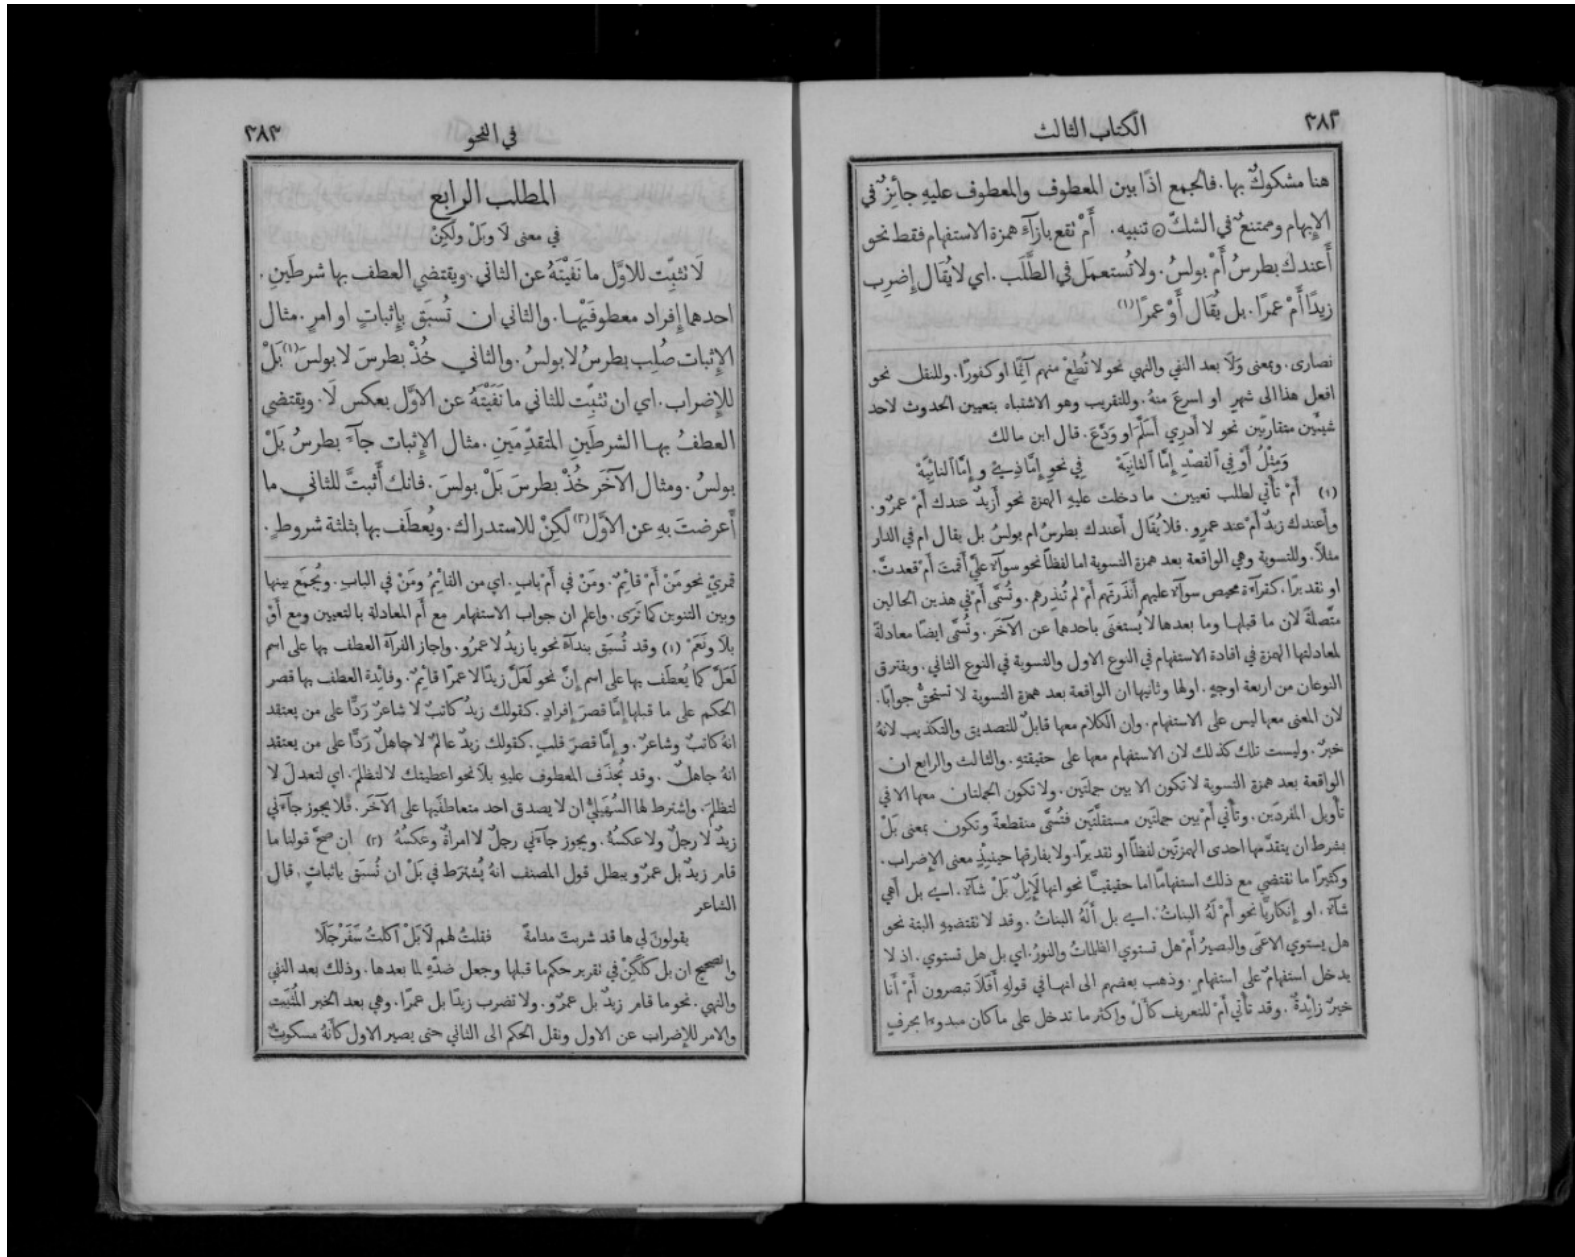 ٣٨٢
الكتاب الثالث
هنا مشكوكٌ بها. فالجمع اذًا بين المعطوف والمعطوف عليهِ جائِزٌ في
الإِبهام وممتنعٌ في الشكّ ۞ تنبيه. أَمْ تقع بازآءِ همزة الاستفهام فقط نحو
أَعندك بطرسُ أَمْ بولسُ. ولا تُستعمَل في الطَّلَب. اي لا يُقَال إِضرِب
زيدًا أَمْ عمرًا. بل يُقَال أَوْ عمرًا (١)
نصارى. وبمعنى وَلَا بعد النفي والنهي نحو لا تُطِعْ منهم آثِمًا او كفورًا. وللنقل نحو
افعل هذا الى شهرٍ او اسرعَ منهُ. وللتقريب وهو الاشتباه بتعيين الحدوث لاحد
شيئَين متقاربَين نحو لا أَدرِي أَسَلَّمَ او وَدَّعَ. قال ابن مالك
وَمِثْلُ أَوْ فِي ٱلقَصْدِ إِمَّا ٱلثانِيَهْ فِي نحوِ إِمَّا ذِي وإِمَّا ٱلنائِيَهْ
(١) أَمْ تأتي لطلب تعيين ما دخلت عليهِ الهمزة نحو أَزيدٌ عندك أَمْ عمرٌو.
وأَعندك زيدٌ أَمْ عند عمرٍو. فلا يُقَال أَعندك بطرسُ ام بولسُ بل يقال ام في الدار
مثلًا. وللتسوية وهي الواقعة بعد همزة التسوية اما لفظًا نحو سوآءٌ عليَّ أَقمتَ أَمْ قعدتَّ.
او تقديرًا. كقرآءة محيصٍ سوآءٌ عليهم أَنذَرتَهم أَمْ لم تُنذِرهم. وتُسمَّى أَمْ في هذين الحالين
متَّصلةً لان ما قبلها وما بعدها لا يُستغنَى باحدها عن الآخَر. وتُسمَّى ايضًا معادلةً
لمعادلتها الهمزة في افادة الاستفهام في النوع الاول والتسوية في النوع الثاني. ويفترق
النوعان من اربعة اوجهٍ. اولها وثانيها ان الواقعة بعد همزة التسوية لا تستحقُّ جوابًا.
لان المعنى معها ليس على الاستفهام. وان الكلام معها قابلٌ للتصديق والتكذيب لانهُ
خبرٌ. وليست تلك كذلك لان الاستفهام معها على حقيقتهِ. والثالث والرابع ان
الواقعة بعد همزة التسوية لا تكون الا بين جملتَين. ولا تكون الجملتان معها الا في
تأويل المفردَين. وتأتي أَمْ بين جملتَين مستقلَّتَين فتُسمَّى منقطعةً وتكون بمعنى بَلْ
بشرط ان يتقدَّمها احدى الهمزتَين لفظًا او تقديرًا. ولا يفارقها حينئِذٍ معنى الإِضراب.
وكثيرًا ما تقتضي مع ذلك استفهامًا اما حقيقيًّا نحو انها لَإِبِلٌ بَلْ شآءٌ. اي بل أَهي
شآءٌ. او إِنكاريًّا نحو أَمْ لَهُ البناتُ. اي بل أَلَهُ البناتُ. وقد لا تقتضيهِ البتة نحو
هل يستوي الاعمَى والبصيرُ أَمْ هل تستوي الظلماتُ والنورُ. اي بل هل تستوي. اذ لا
يدخل استفهامٌ على استفهامٍ. وذهب بعضهم الى انها في قولهِ أَفَلَا تبصرون أَمْ أَنا
خيرٌ زائِدةٌ. وقد تأتي أَمْ للتعريف كأَلْ واكثر ما تدخل على ما كان مبدوءًا بحرفٍ
في النحو
٣٨٣
المطلب الرابع
في معنى لَا وبَلْ ولٰكِنْ
لَا تثبِّت للاوَّل ما نَفَيْتَهُ عن الثاني. ويقتضي العطف بها شرطَين.
احدهما إِفراد معطوفَيْها. والثاني ان تُسبَق بإِثباتٍ او امرٍ. مثال
الإِثبات صُلِب بطرسُ لا بولسُ. والثاني خُذْ بطرسَ لا بولسَ (١) بَلْ
للإِضراب. اي ان تثبِّت للثاني ما نَفَيْتَهُ عن الاوَّل بعكس لَا. ويقتضي
العطفُ بها الشرطَينِ المتقدِّمَينِ. مثال الإِثبات جآءَ بطرسُ بَلْ
بولسُ. ومثال الآخَر خُذْ بطرسَ بَلْ بولسَ. فانك أَثبتَّ للثاني ما
أَعرضتَ بهِ عن الاوَّل (٢) لٰكِنْ للاستدراك. ويُعطَف بها بثلثة شروطٍ.
قمريٍّ نحو مَنْ أَمْ قائِمٌ. ومَنْ في أَمْ بابِ. اي من القائِمُ ومَنْ في البابِ. ويُجمَع بينها
وبين التنوين كما تَرَى. واعلم ان جواب الاستفهام مع أَم المعادلة بالتعيين ومع أَوْ
بلَا ونَعَمْ (١) وقد تُسبَق بندآءٍ نحو يا زيدُ لا عمرُو. واجاز الفرآءُ العطف بها على اسم
لَعَلَّ كما يُعطَف بها على اسم إِنَّ نحو لَعَلَّ زيدًا لا عمرًا قائِمٌ. وفائِدة العطف بها قصر
الحكم على ما قبلها إِمَّا قصرَ إِفرادٍ. كقولك زيدٌ كاتبٌ لا شاعرٌ رَدًّا على من يعتقد
انهُ كاتبٌ وشاعرٌ. وإِمَّا قصرَ قلبٍ. كقولك زيدٌ عالمٌ لا جاهلٌ رَدًّا على من يعتقد
انهُ جاهلٌ. وقد يُحذَف المعطوف عليهِ بلَا نحو اعطيتك لا لتظلمَ. اي لتعدلَ لا
لتظلمَ. واشترط لها السُّهَيليُّ ان لا يصدق احد متعاطفَيها على الآخَر. فلا يجوز جآءَني
زيدٌ لا رجلٌ ولا عكسهُ. ويجوز جآءَني رجلٌ لا امرأةٌ وعكسُهُ (٢) ان صحَّ قولنا ما
قام زيدٌ بل عمرٌو يبطل قول المصنف انهُ يُشترَط في بَلْ ان تُسبَق باثباتٍ. قال
الشاعر
يقولونَ لي ها قد شربتَ مدامةً فقلتُ لهم لَا بَلْ أَكلتُ سَفَرْجَلَا
والصحيح ان بل كلٰكِنْ في تقرير حكم ما قبلها وجعل ضدّهِ لما بعدها. وذلك بعد النفي
والنهي. نحو ما قام زيدٌ بل عمرٌو. ولا تضرب زيدًا بل عمرًا. وهي بعد الخبر المُثبَت
والامر للإِضراب عن الاول ونقل الحكم الى الثاني حتى يصير الاول كأَنهُ مسكوتٌ